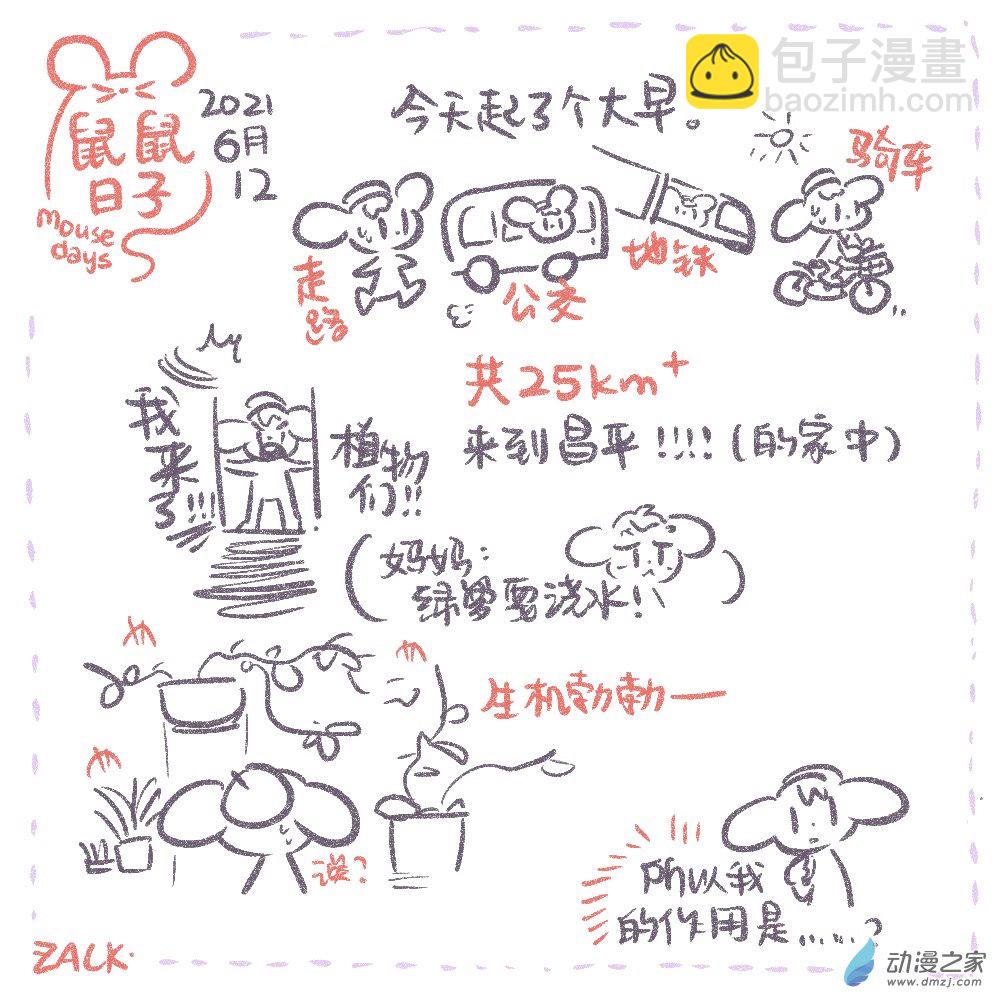 鼠鼠
日子
mouse
days
2021
6月
12
今天起了个大早。
包子漫畫
baozimh.com
走路
公交
地铁
骑车
共25km+
来到昌平!!!!(的家中)
我来了!!!
植物
们!!
(妈妈:
绿萝要浇水!)
生机勃勃一
诶?
所以我
的作用是......?
ZALK.
动漫之家
www.dmzj.com